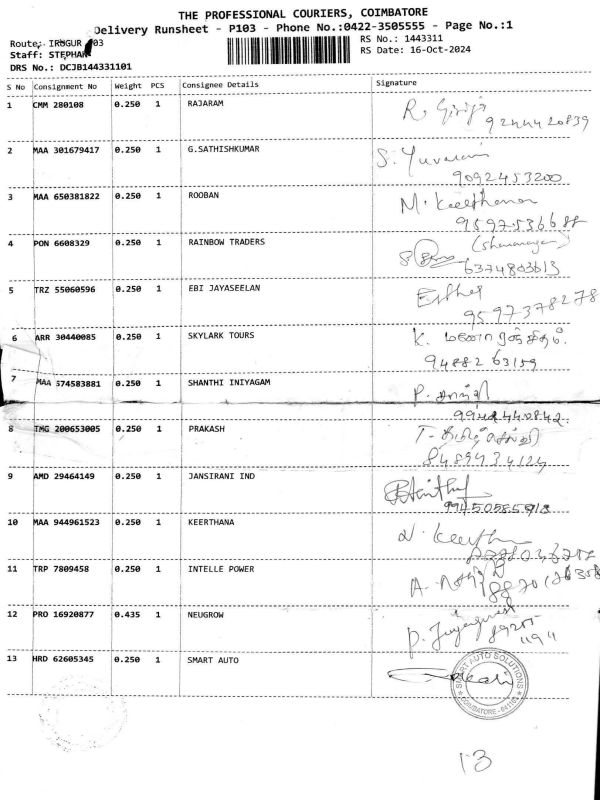 THE PROFESSIONAL COURIERS, COIMBATORE
Delivery Runsheet - P103 - Phone No.:0422-3505555 - Page No.:1
Route: IRUGUR 03 RS No.: 1443311
Staff: STEPHAN RS Date: 16-Oct-2024
DRS No.: DCJB144331101
S No Consignment No Weight PCS Consignee Details Signature
1 CMM 280108 0.250 1 RAJARAM R. Girija
9244420839
2 MAA 301679417 0.250 1 G.SATHISHKUMAR S. Yuvarani
9092453200
3 MAA 650381822 0.250 1 ROOBAN M. Keerthana
4 PON 6608329 0.250 1 RAINBOW TRADERS
6374803613
5 TRZ 55060596 0.250 1 EBI JAYASEELAN Esther
9597378278
6 ARR 30440085 0.250 1 SKYLARK TOURS K.
94882 63159
7 MAA 574583881 0.250 1 SHANTHI INIYAGAM P. சாந்தி
8 TMG 200653005 0.250 1 PRAKASH T.
8489434124
9 AMD 29464149 0.250 1 JANSIRANI IND
10 MAA 944961523 0.250 1 KEERTHANA
11 TRP 7809458 0.250 1 INTELLE POWER A.
12 PRO 16920877 0.435 1 NEUGROW P.
13 HRD 62605345 0.250 1 SMART AUTO
SMART AUTO SOLUTIONS
COIMBATORE
13